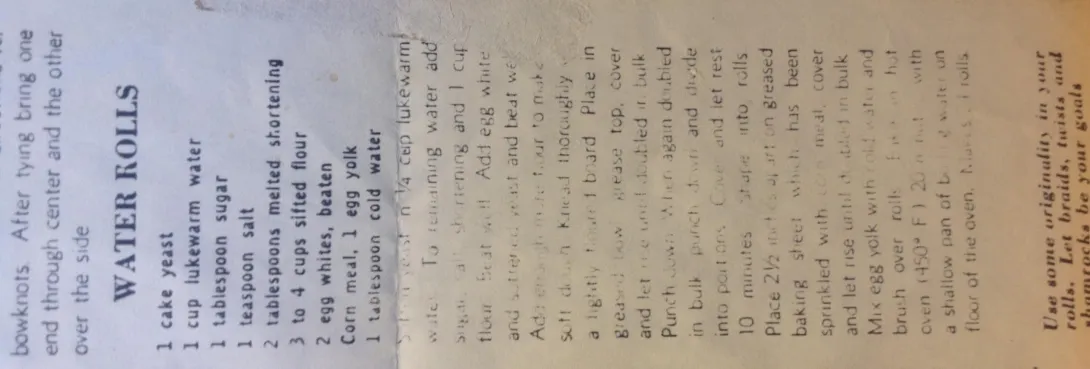 bowknots. After tying bring one
end through center and the other
over the side
WATER ROLLS
1 cake yeast
1 cup lukewarm water
1 tablespoon sugar
1 teaspoon salt
2 tablespoons melted shortening
3 to 4 cups sifted flour
2 egg whites, beaten
Corn meal, 1 egg yolk
1 tablespoon cold water
yeast in ¼ cup lukewarm
water To remaining water add
sugar, salt, shortening and 1 cup
flour Beat well Add egg white
and softened yeast and beat
Add enough more flour to make
soft dough Knead thoroughly
a lightly floured board Place in
greased bowl grease top, cover
and let rise until doubled in bulk
Punch down When again doubled
in bulk punch down and divide
into portions Cover and let rest
10 minutes Shape into rolls
Place 2½ inches apart on greased
baking sheet which has been
sprinkled with corn meal, cover
and let rise until doubled in bulk
Mix egg yolk with cold water and
brush over rolls hot
oven (450° F) 20 with
a shallow pan of boiling water on
floor of the oven. Makes rolls
Use some originality in your
rolls. Let braids, twists and
your goals